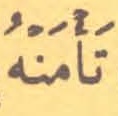 تَأْمَنْهُ